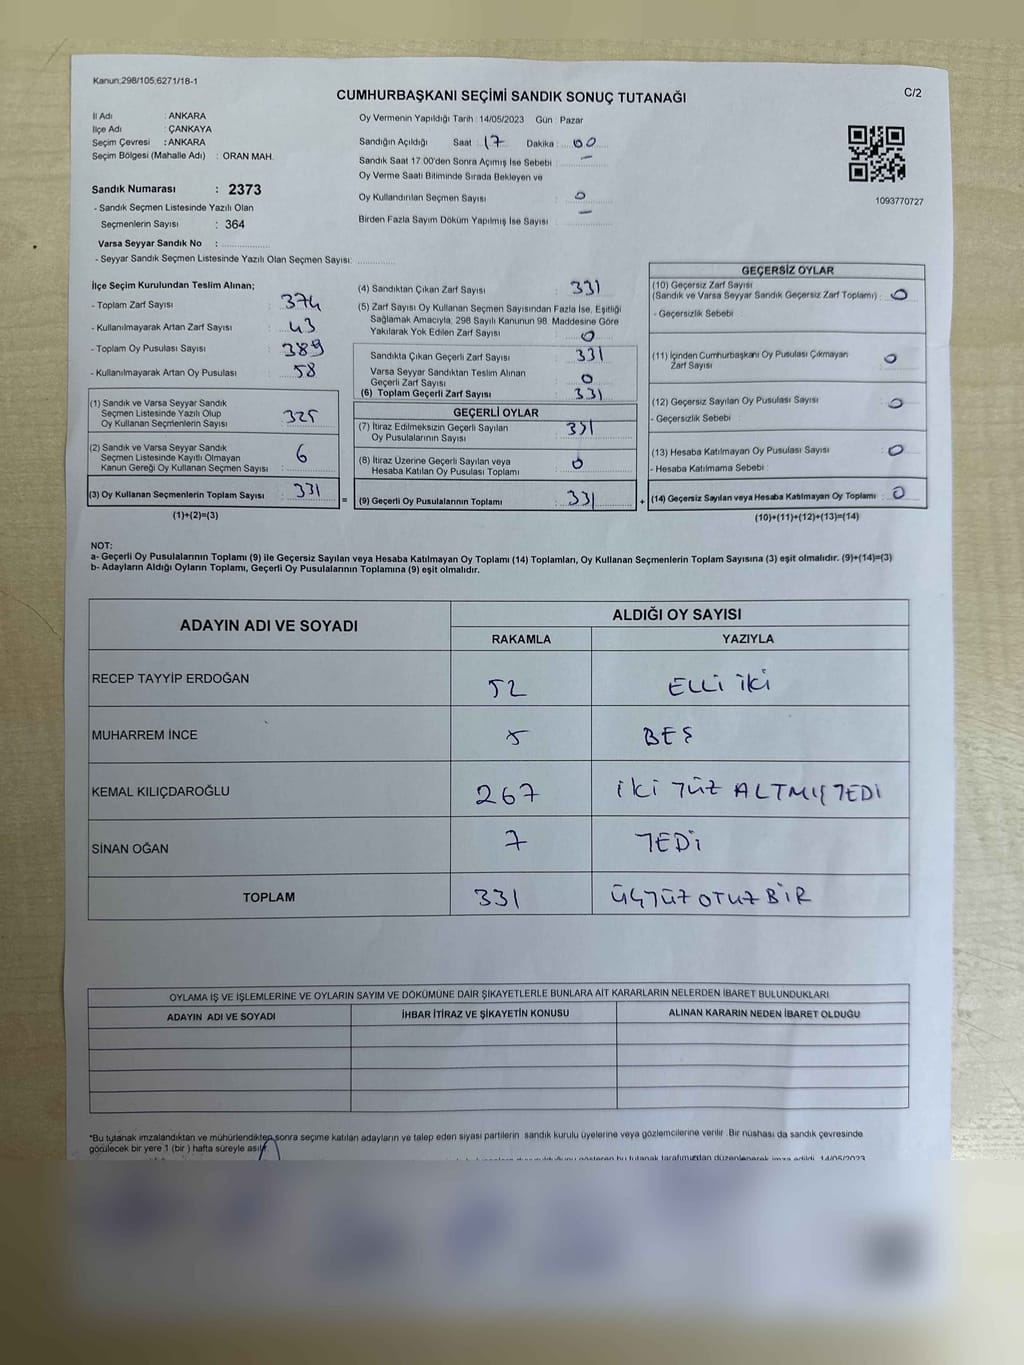 Kanun:298/105,6271/18-1
CUMHURBAŞKANI SEÇİMİ SANDIK SONUÇ TUTANAĞI
C/2
İl Adı : ANKARA
İlçe Adı : ÇANKAYA
Seçim Çevresi : ANKARA
Seçim Bölgesi (Mahalle Adı) : ORAN MAH.
Sandık Numarası : 2373
- Sandık Seçmen Listesinde Yazılı Olan
Seçmenlerin Sayısı : 364
Varsa Seyyar Sandık No : ..............
- Seyyar Sandık Seçmen Listesinde Yazılı Olan Seçmen Sayısı: ............
Oy Vermenin Yapıldığı Tarih : 14/05/2023 Gün : Pazar
Sandığın Açıldığı Saat : 17 Dakika : 00
Sandık Saat 17.00'den Sonra Açımış İse Sebebi : —
Oy Verme Saati Bitiminde Sırada Bekleyen ve
Oy Kullandırılan Seçmen Sayısı : 0
Birden Fazla Sayım Döküm Yapılmış İse Sayısı : —
1093770727
İlçe Seçim Kurulundan Teslim Alınan;
- Toplam Zarf Sayısı : 374
- Kullanılmayarak Artan Zarf Sayısı : 43
- Toplam Oy Pusulası Sayısı : 389
- Kullanılmayarak Artan Oy Pusulası : 58
(1) Sandık ve Varsa Seyyar Sandık
Seçmen Listesinde Yazılı Olup
Oy Kullanan Seçmenlerin Sayısı : 325
(2) Sandık ve Varsa Seyyar Sandık
Seçmen Listesinde Kayıtlı Olmayan
Kanun Gereği Oy Kullanan Seçmen Sayısı : 6
(3) Oy Kullanan Seçmenlerin Toplam Sayısı : 331
(1)+(2)=(3)
=
(4) Sandıktan Çıkan Zarf Sayısı : 331
(5) Zarf Sayısı Oy Kullanan Seçmen Sayısından Fazla İse, Eşitliği
Sağlamak Amacıyla, 298 Sayılı Kanunun 98. Maddesine Göre
Yakılarak Yok Edilen Zarf Sayısı : 0
Sandıkta Çıkan Geçerli Zarf Sayısı : 331
Varsa Seyyar Sandıktan Teslim Alınan
Geçerli Zarf Sayısı : 0
(6) Toplam Geçerli Zarf Sayısı : 331
GEÇERLİ OYLAR
(7) İtiraz Edilmeksizin Geçerli Sayılan
Oy Pusulalarının Sayısı : 331
(8) İtiraz Üzerine Geçerli Sayılan veya
Hesaba Katılan Oy Pusulası Toplamı : 0
(9) Geçerli Oy Pusulalarının Toplamı : 331
+
GEÇERSİZ OYLAR
(10) Geçersiz Zarf Sayısı
(Sandık ve Varsa Seyyar Sandık Geçersiz Zarf Toplamı) : 0
- Geçersizlik Sebebi
(11) İçinden Cumhurbaşkanı Oy Pusulası Çıkmayan
Zarf Sayısı : 0
(12) Geçersiz Sayılan Oy Pusulası Sayısı : 0
- Geçersizlik Sebebi :
(13) Hesaba Katılmayan Oy Pusulası Sayısı : 0
- Hesaba Katılmama Sebebi :
(14) Geçersiz Sayılan veya Hesaba Katılmayan Oy Toplamı : 0
(10)+(11)+(12)+(13)=(14)
NOT:
a- Geçerli Oy Pusulalarının Toplamı (9) ile Geçersiz Sayılan veya Hesaba Katılmayan Oy Toplamı (14) Toplamları, Oy Kullanan Seçmenlerin Toplam Sayısına (3) eşit olmalıdır. (9)+(14)=(3)
b- Adayların Aldığı Oyların Toplamı, Geçerli Oy Pusulalarının Toplamına (9) eşit olmalıdır.
ADAYIN ADI VE SOYADI
ALDIĞI OY SAYISI
RAKAMLA YAZIYLA
RECEP TAYYİP ERDOĞAN 52 ELLİ İKİ
MUHARREM İNCE 5 BEŞ
KEMAL KILIÇDAROĞLU 267 İKİ YÜZ ALTMIŞ YEDİ
SİNAN OĞAN 7 YEDİ
TOPLAM 331 ÜÇYÜZ OTUZ BİR
OYLAMA İŞ VE İŞLEMLERİNE VE OYLARIN SAYIM VE DÖKÜMÜNE DAİR ŞİKAYETLERLE BUNLARA AİT KARARLARIN NELERDEN İBARET BULUNDUKLARI
ADAYIN ADI VE SOYADI İHBAR İTİRAZ VE ŞİKAYETİN KONUSU ALINAN KARARIN NEDEN İBARET OLDUĞU
*Bu tutanak imzalandıktan ve mühürlendikten sonra seçime katılan adayların ve talep eden siyasi partilerin sandık kurulu üyelerine veya gözlemcilerine verilir .Bir nüshası da sandık çevresinde
görülecek bir yere 1 (bir ) hafta süreyle asılır.
bu tutanak tarafımızdan düzenlenerek imza edildi. 14/05/2023